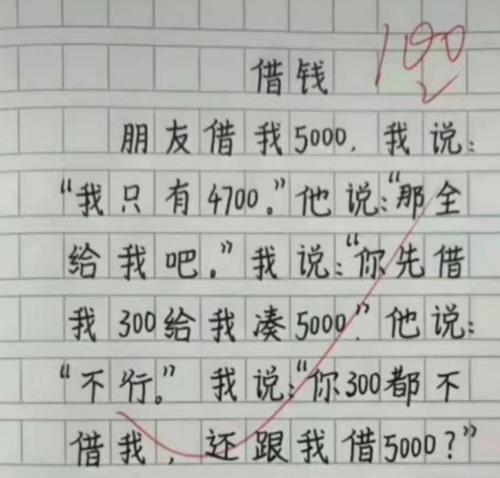 借钱 100
朋友借我5000，我说：
“我只有4700。”他说：“那全
给我吧。”我说：“你先借
我300给我凑5000”他说：
“不行。”我说：“你300都不
借我，还跟我借5000？”